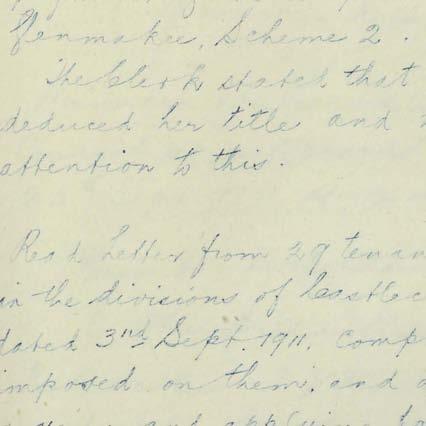 Scheme 2.
The Clerk stated that
deduced her title and
attention to this.
Read letter from 29 tenan
in the divisions of Castlec
dated 3rd Sept. 1911. Comp
imposed on them, and a
and applying